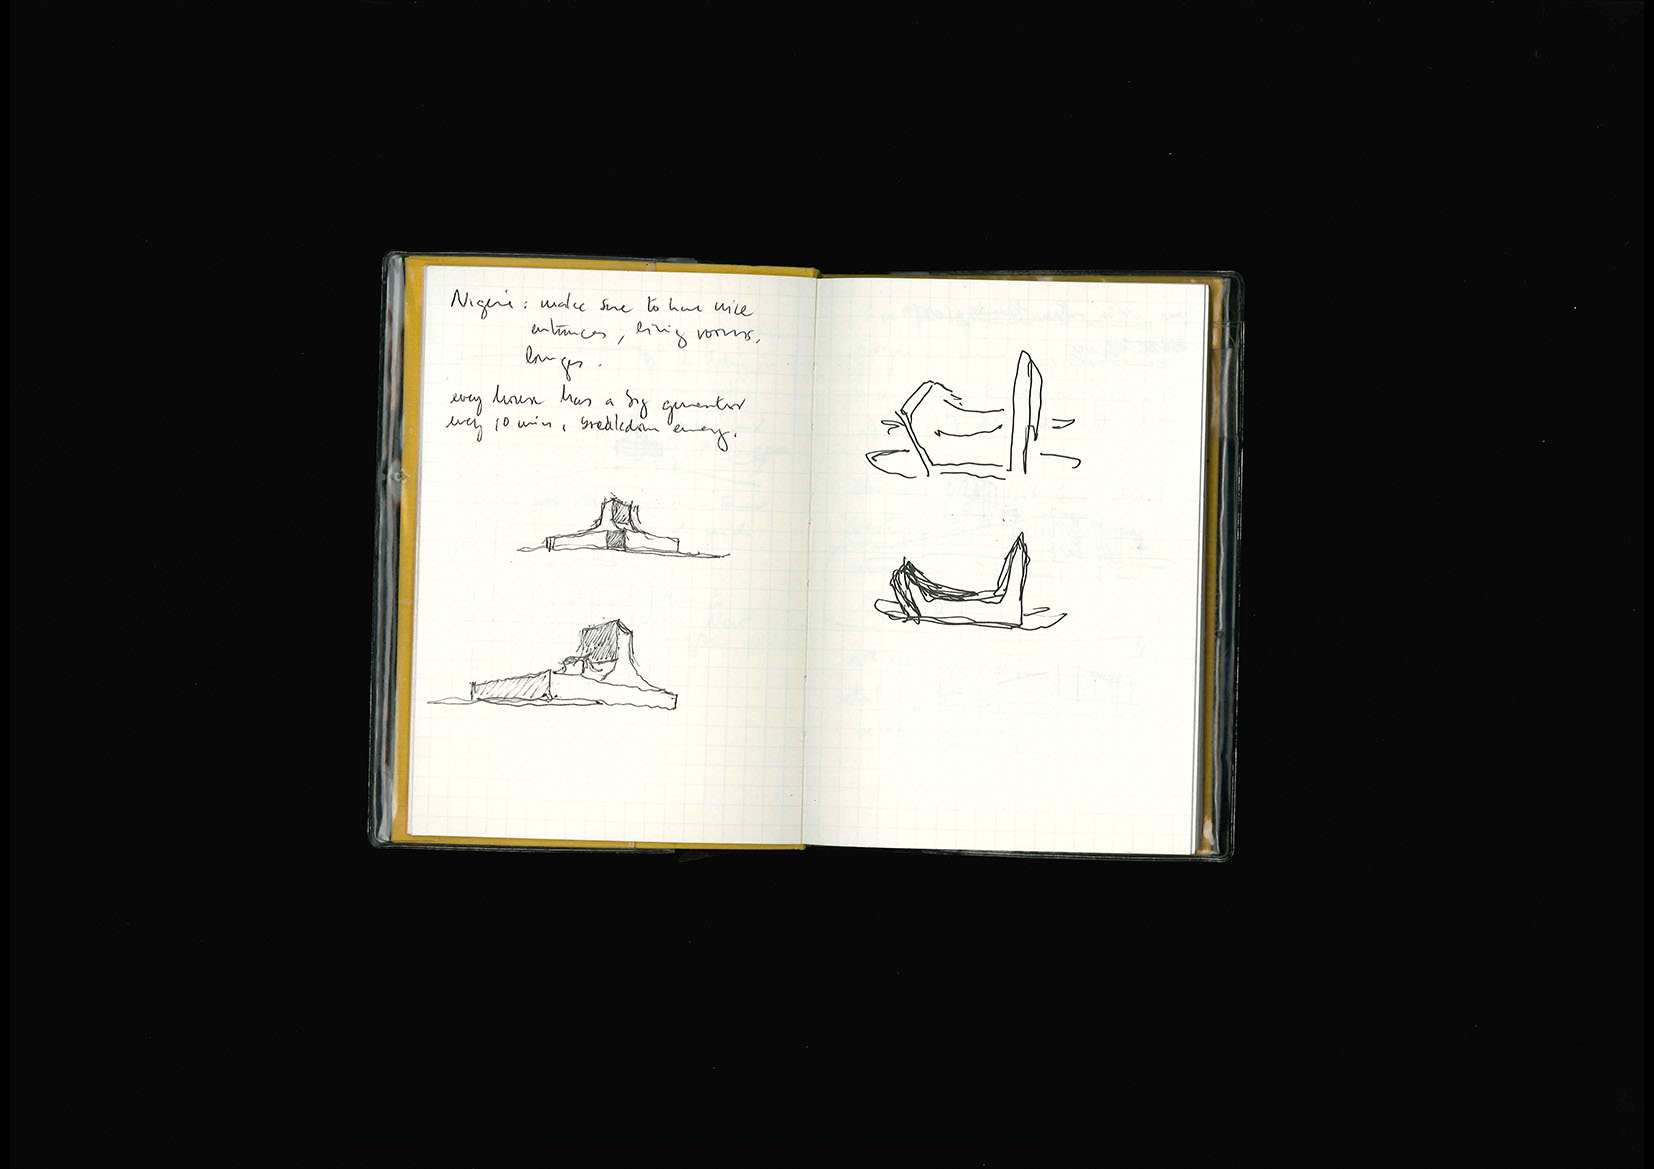 Nigeria: make sure to have nice
entrances, living rooms,
lounges.
every house has a big generator
every 10 min, breakdown energy.